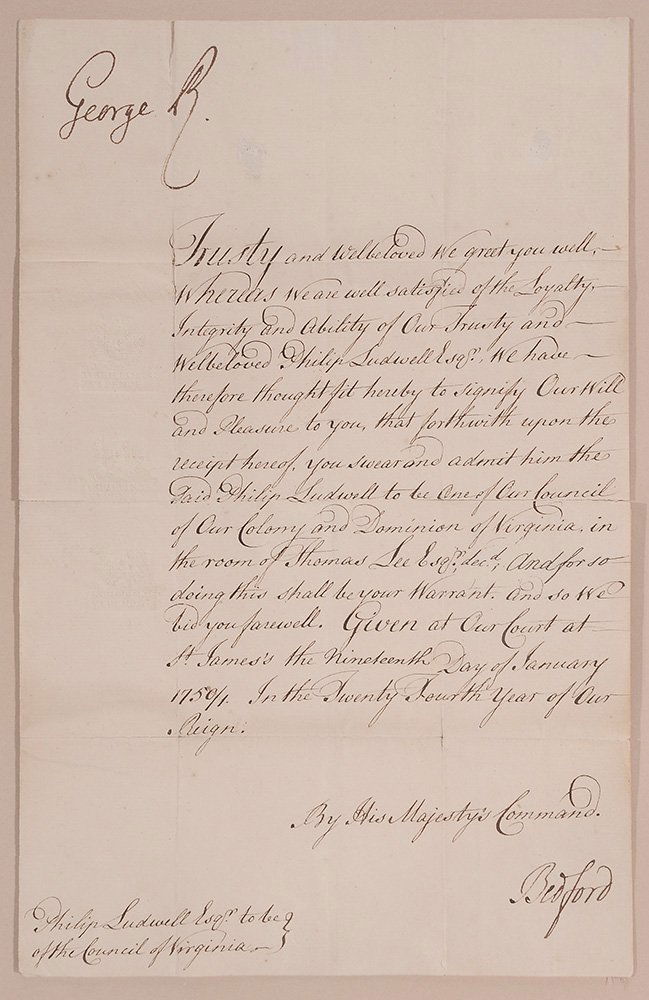 George R.
Trusty and Welbeloved We greet you well,
Whereas We are well satisfied of the Loyalty,
Integrity and Ability of Our Trusty and
Welbeloved Philip Ludwell Esqr., We have
therefore thought fit hereby to signify Our Will
and Pleasure to you, that forthwith upon the
receipt hereof, you swear and admit him the
said Philip Ludwell to be One of Our Council
of Our Colony and Dominion of Virginia, in
the room of Thomas Lee Esqr., decd; And for so
doing this shall be your Warrant. And so We
bid you farewell. Given at Our Court at
St. James's the Nineteenth Day of January
1750/1. In the Twenty Fourth Year of Our
Reign.
By His Majesty's Command.
Bedford
Philip Ludwell Esqr. to be
of the Council of Virginia